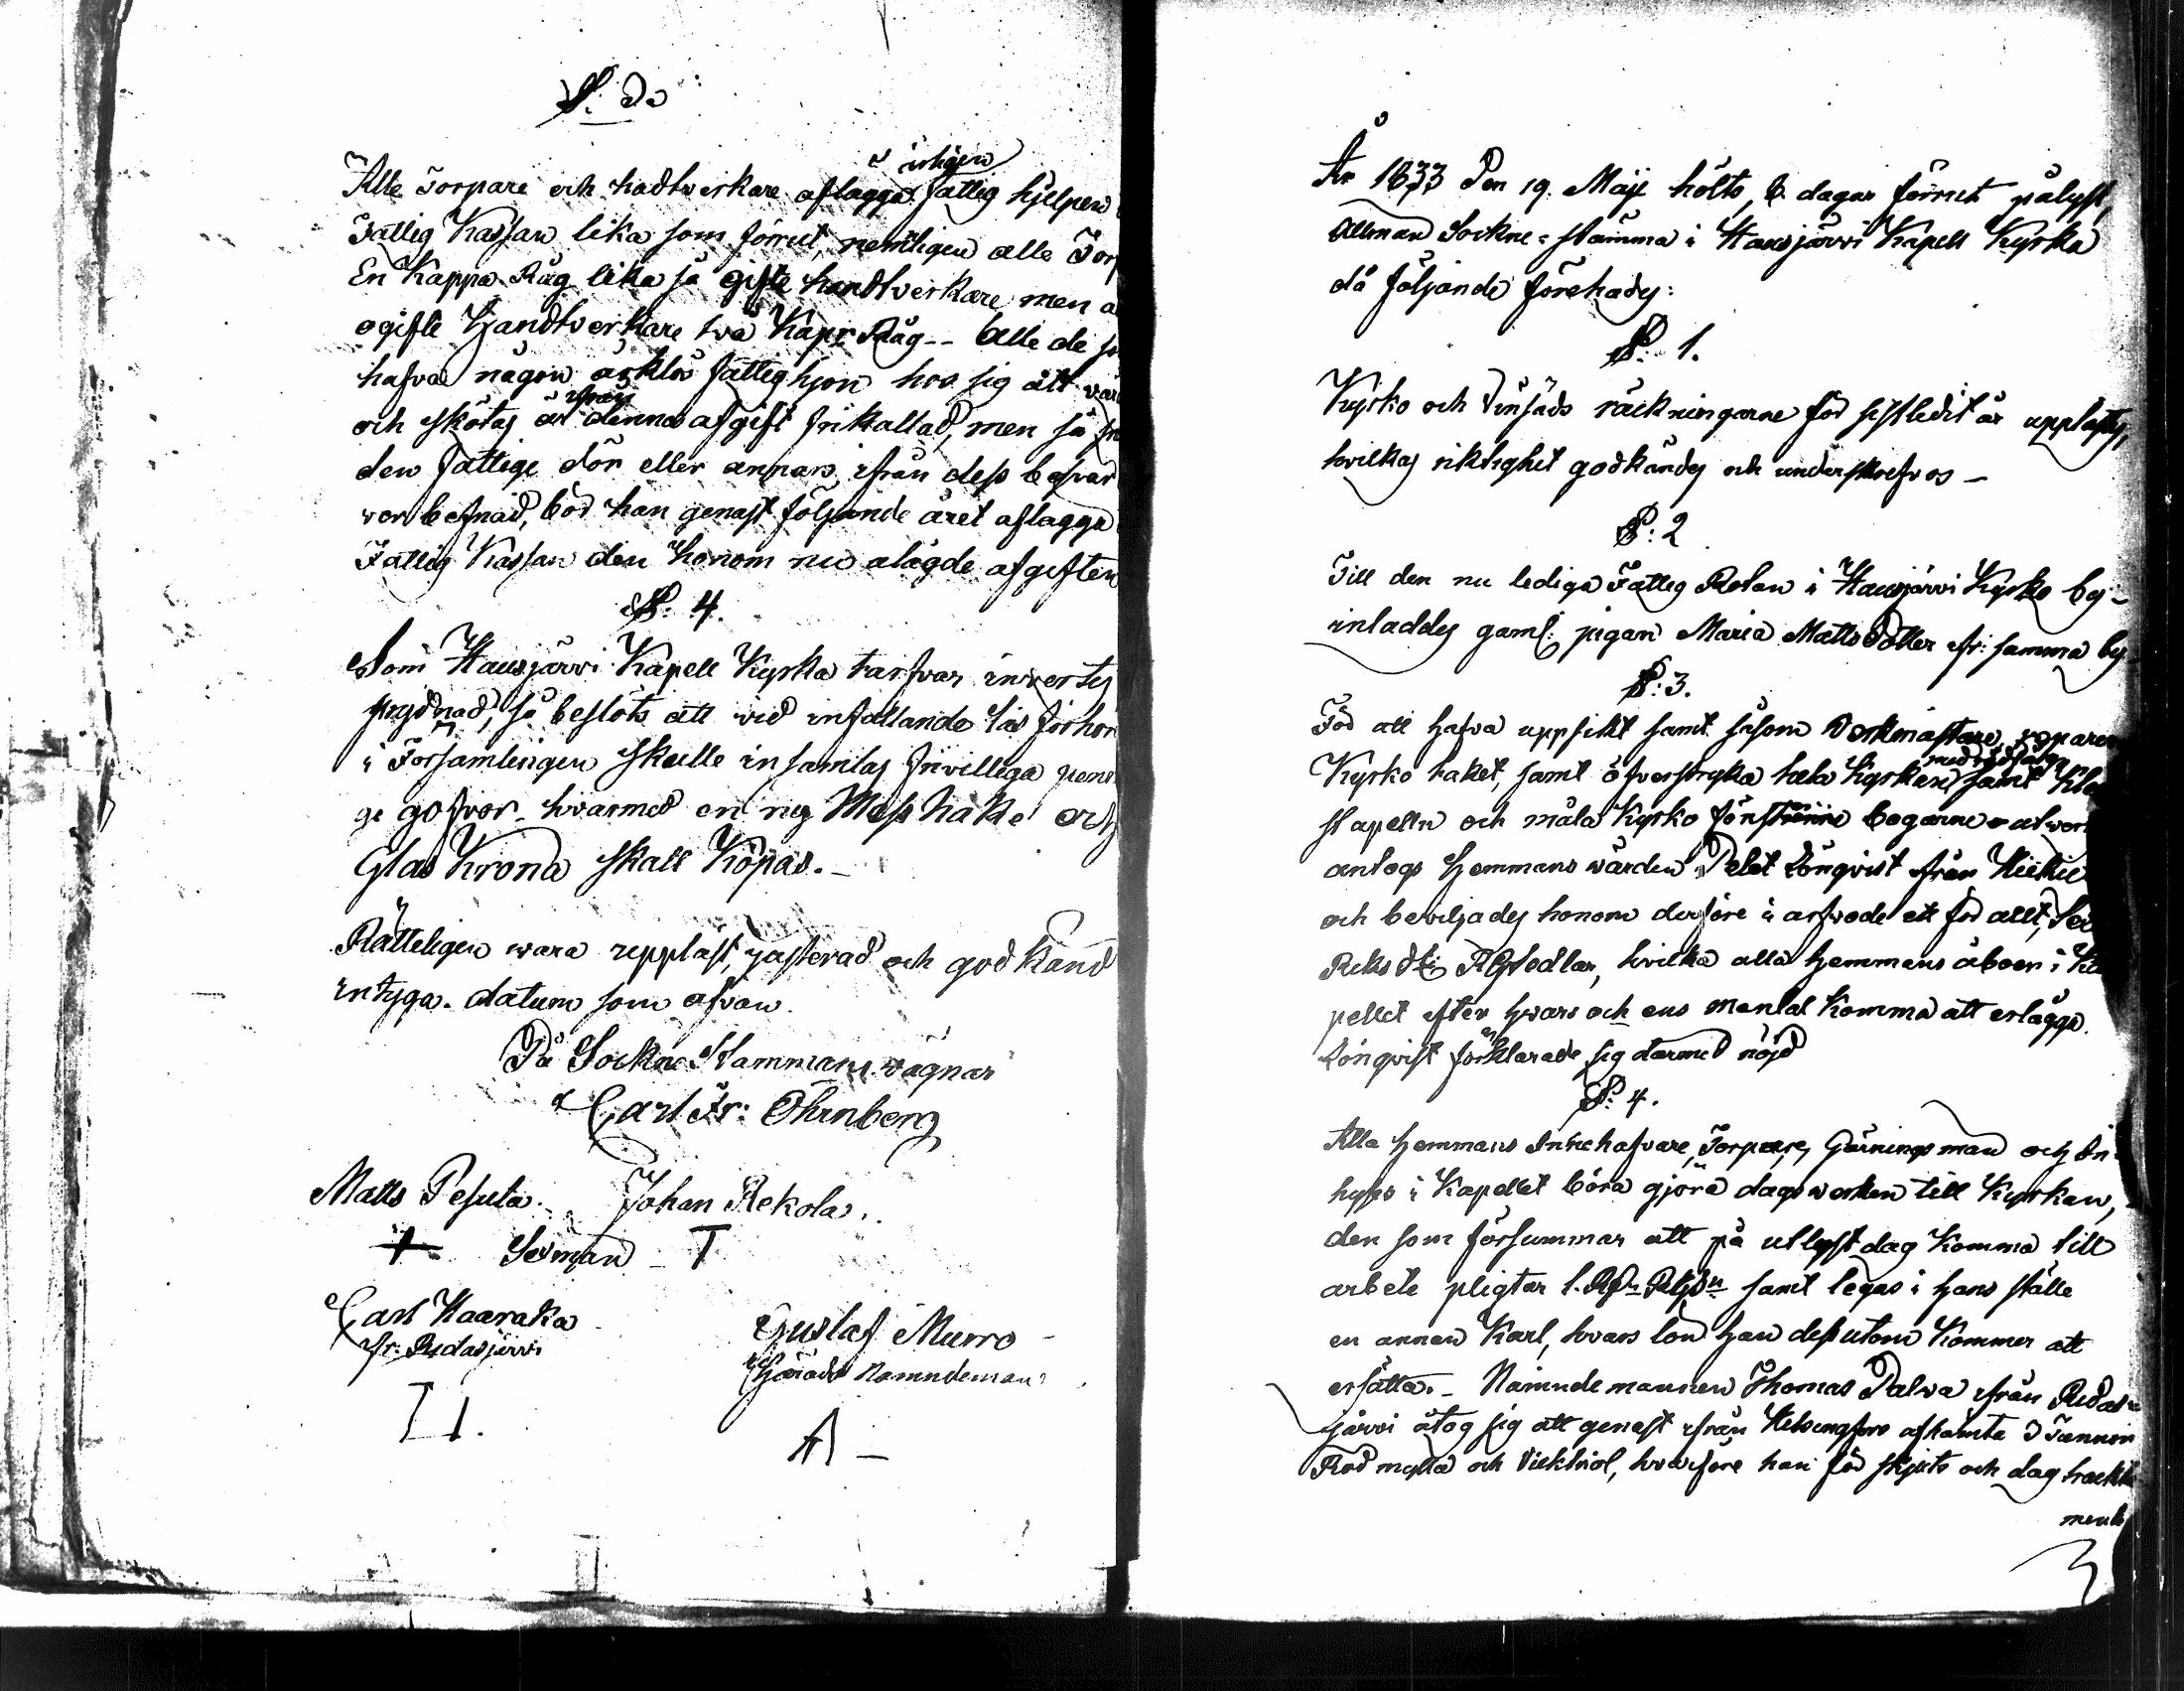 §. 3
årligen
Alle Torpare och hadtverkare aflägga fattig hjelpen
Fattig Kassan lika som förrut, nemligen alle Torp
En Kappa Råg lika så gifte handtverkare men a
ogifte Handtverkare två Kapr Råg -- Alle de so
hafva någon årklös fattighjon hos sig att vår
och skötas är ifrån dennes afgift frikallad, men så
den fattige dör eller annars ifrån dess besvär
ver befriad, bör han genast följande året aflägga
Fattig Kassan den honom nu alagde afgiften
§. 4.
Som Hausjärvi Kapell Kyrka tarfvar invertes
prydnad, så beslöts att vid infallande läs förhör
i Församlingen skulle insamlas frivilliga penn
ge gofvor hvarmed en ny Mess hake och
Glas Krona skall Köpas.-
Rätteligen wara uppläst, justerad och god känd
intyga. datum som ofvan.
På Sockne Stämmans vägnar
Carl Fr: Öhrnberg
Matts Pesuta. Johan Rekola.
+ Sexmän T
Carl Haaraka
fr: Ridasjärvi
Gustaf Murro
Härads Nämndeman

År 1833 Den 19. Maji hölts, 8. dagar förrut pålyst,
Allmän Sockne-stämma i Hausjärvi Kapell Kyrka
då följande förehades:
§. 1.
Kyrko och räckningarne för sistledit år upplästes,
hvilkas riktighet godkändes och underskrefvos -
§: 2
Till den nu lediga Fattig Rotan i Hausjärvi Kyrko by-
inladdes gaml: pigan Maria Matts Dotter fr: samma by
§: 3.
För att hafva uppsikt samt såsom Verkmästare reparera
med rödfärga
Kyrko taket, samt öfverstryka hela Kyrkan samt Klock
stapeln och måla Kyrko fönster bogarne utvert
antogs Hemmans wärden Lönqvist från
och beviljades honom derföre i arfvode ett för allt,
Riks dlr RGsedlar, hvilka alla Hemmans åboer i Ka
pellet efter hvars och ens mantal komma att erlägga.
Lönqvist förklarade sig därmed nöjd
§: 4.
Alla Hemmans Innehafvare, Torpare, Gärningsmän och In-
hyses i Kapellet böra gjöra dagsverken till Kyrkan,
den som försummar att på utlyst dag Komma till
arbete pligtar 1. samt legas i hans ställe
en annan Karl, hvars lön han dessutom kommer att
ersätta.- Nämndemannen Thomas Palva ifrån Ridas-
järvi åtog sig att genast ifrån Helsingfors afhämta 3 Tunnor
Röd mylla och Vicktriol, hvarföre han för skjuts och dag trackta
ments